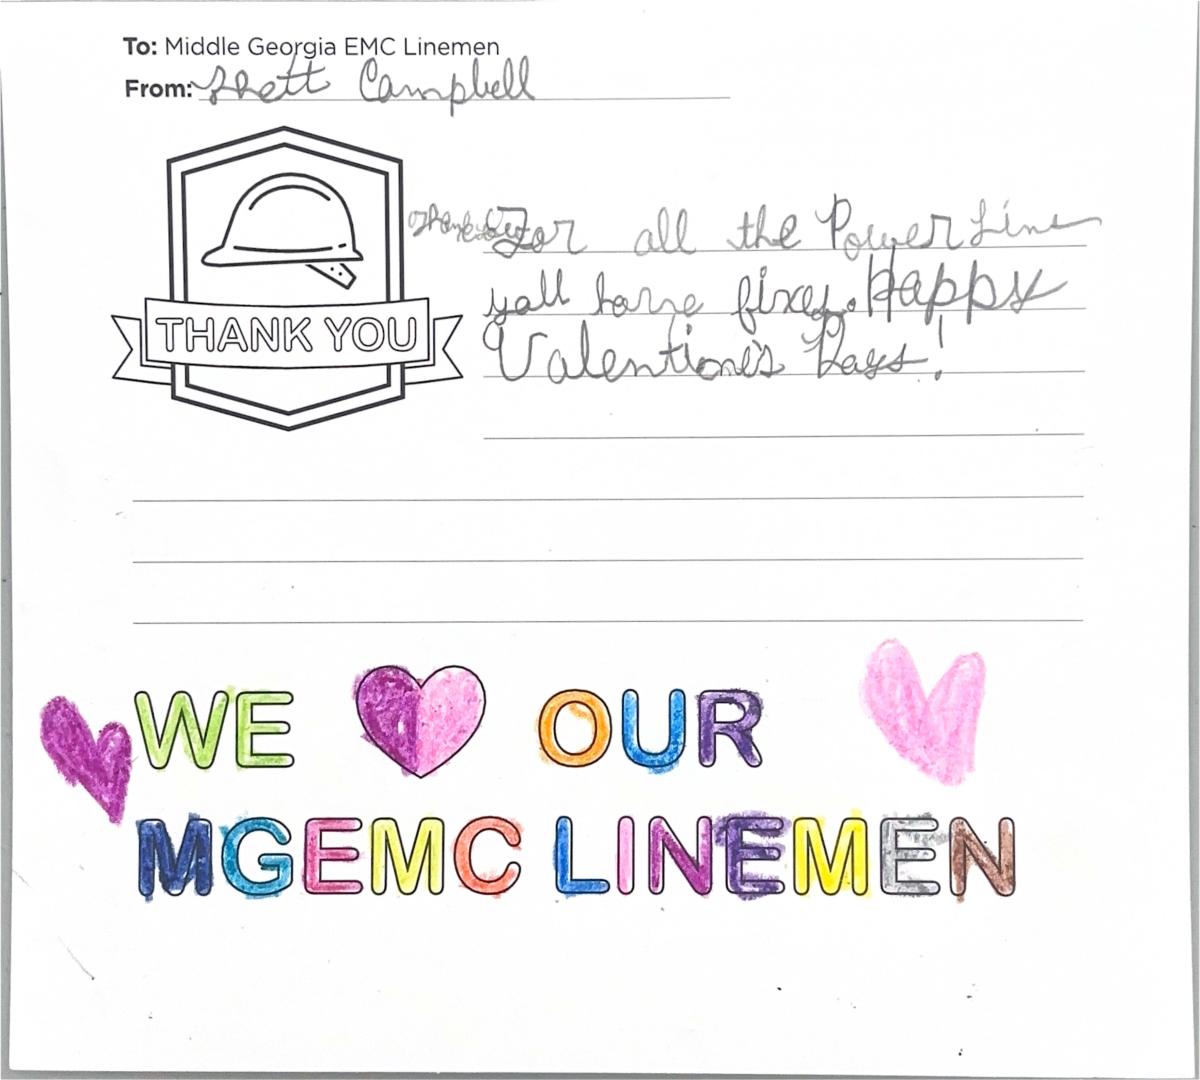 To: Middle Georgia EMC Linemen
From: Rhett Campbell
THANK YOU
Thank you For all the Power Line
yall have fixes. Happy
Valentine's Days!
WE OUR
MGEMC LINEMEN